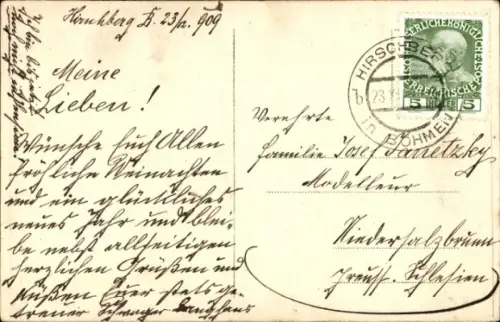 Hirschberg B. 23/12. 909
Meine
Lieben!
Wünsche Euch Allen
fröhliche Weinachten
und ein glückliches
neues Jahr und blei-
be nebst allseitigen
herzlichen Grüßen und
Küßen Euer stets ge-
treuer Schwager
HIRSCHBERG
in BÖHMEN
5 HELLER 5
Verehrte
Familie Josef Janetzky
Modelleur
Niedersalzbrunn
Preuss. Schlesien